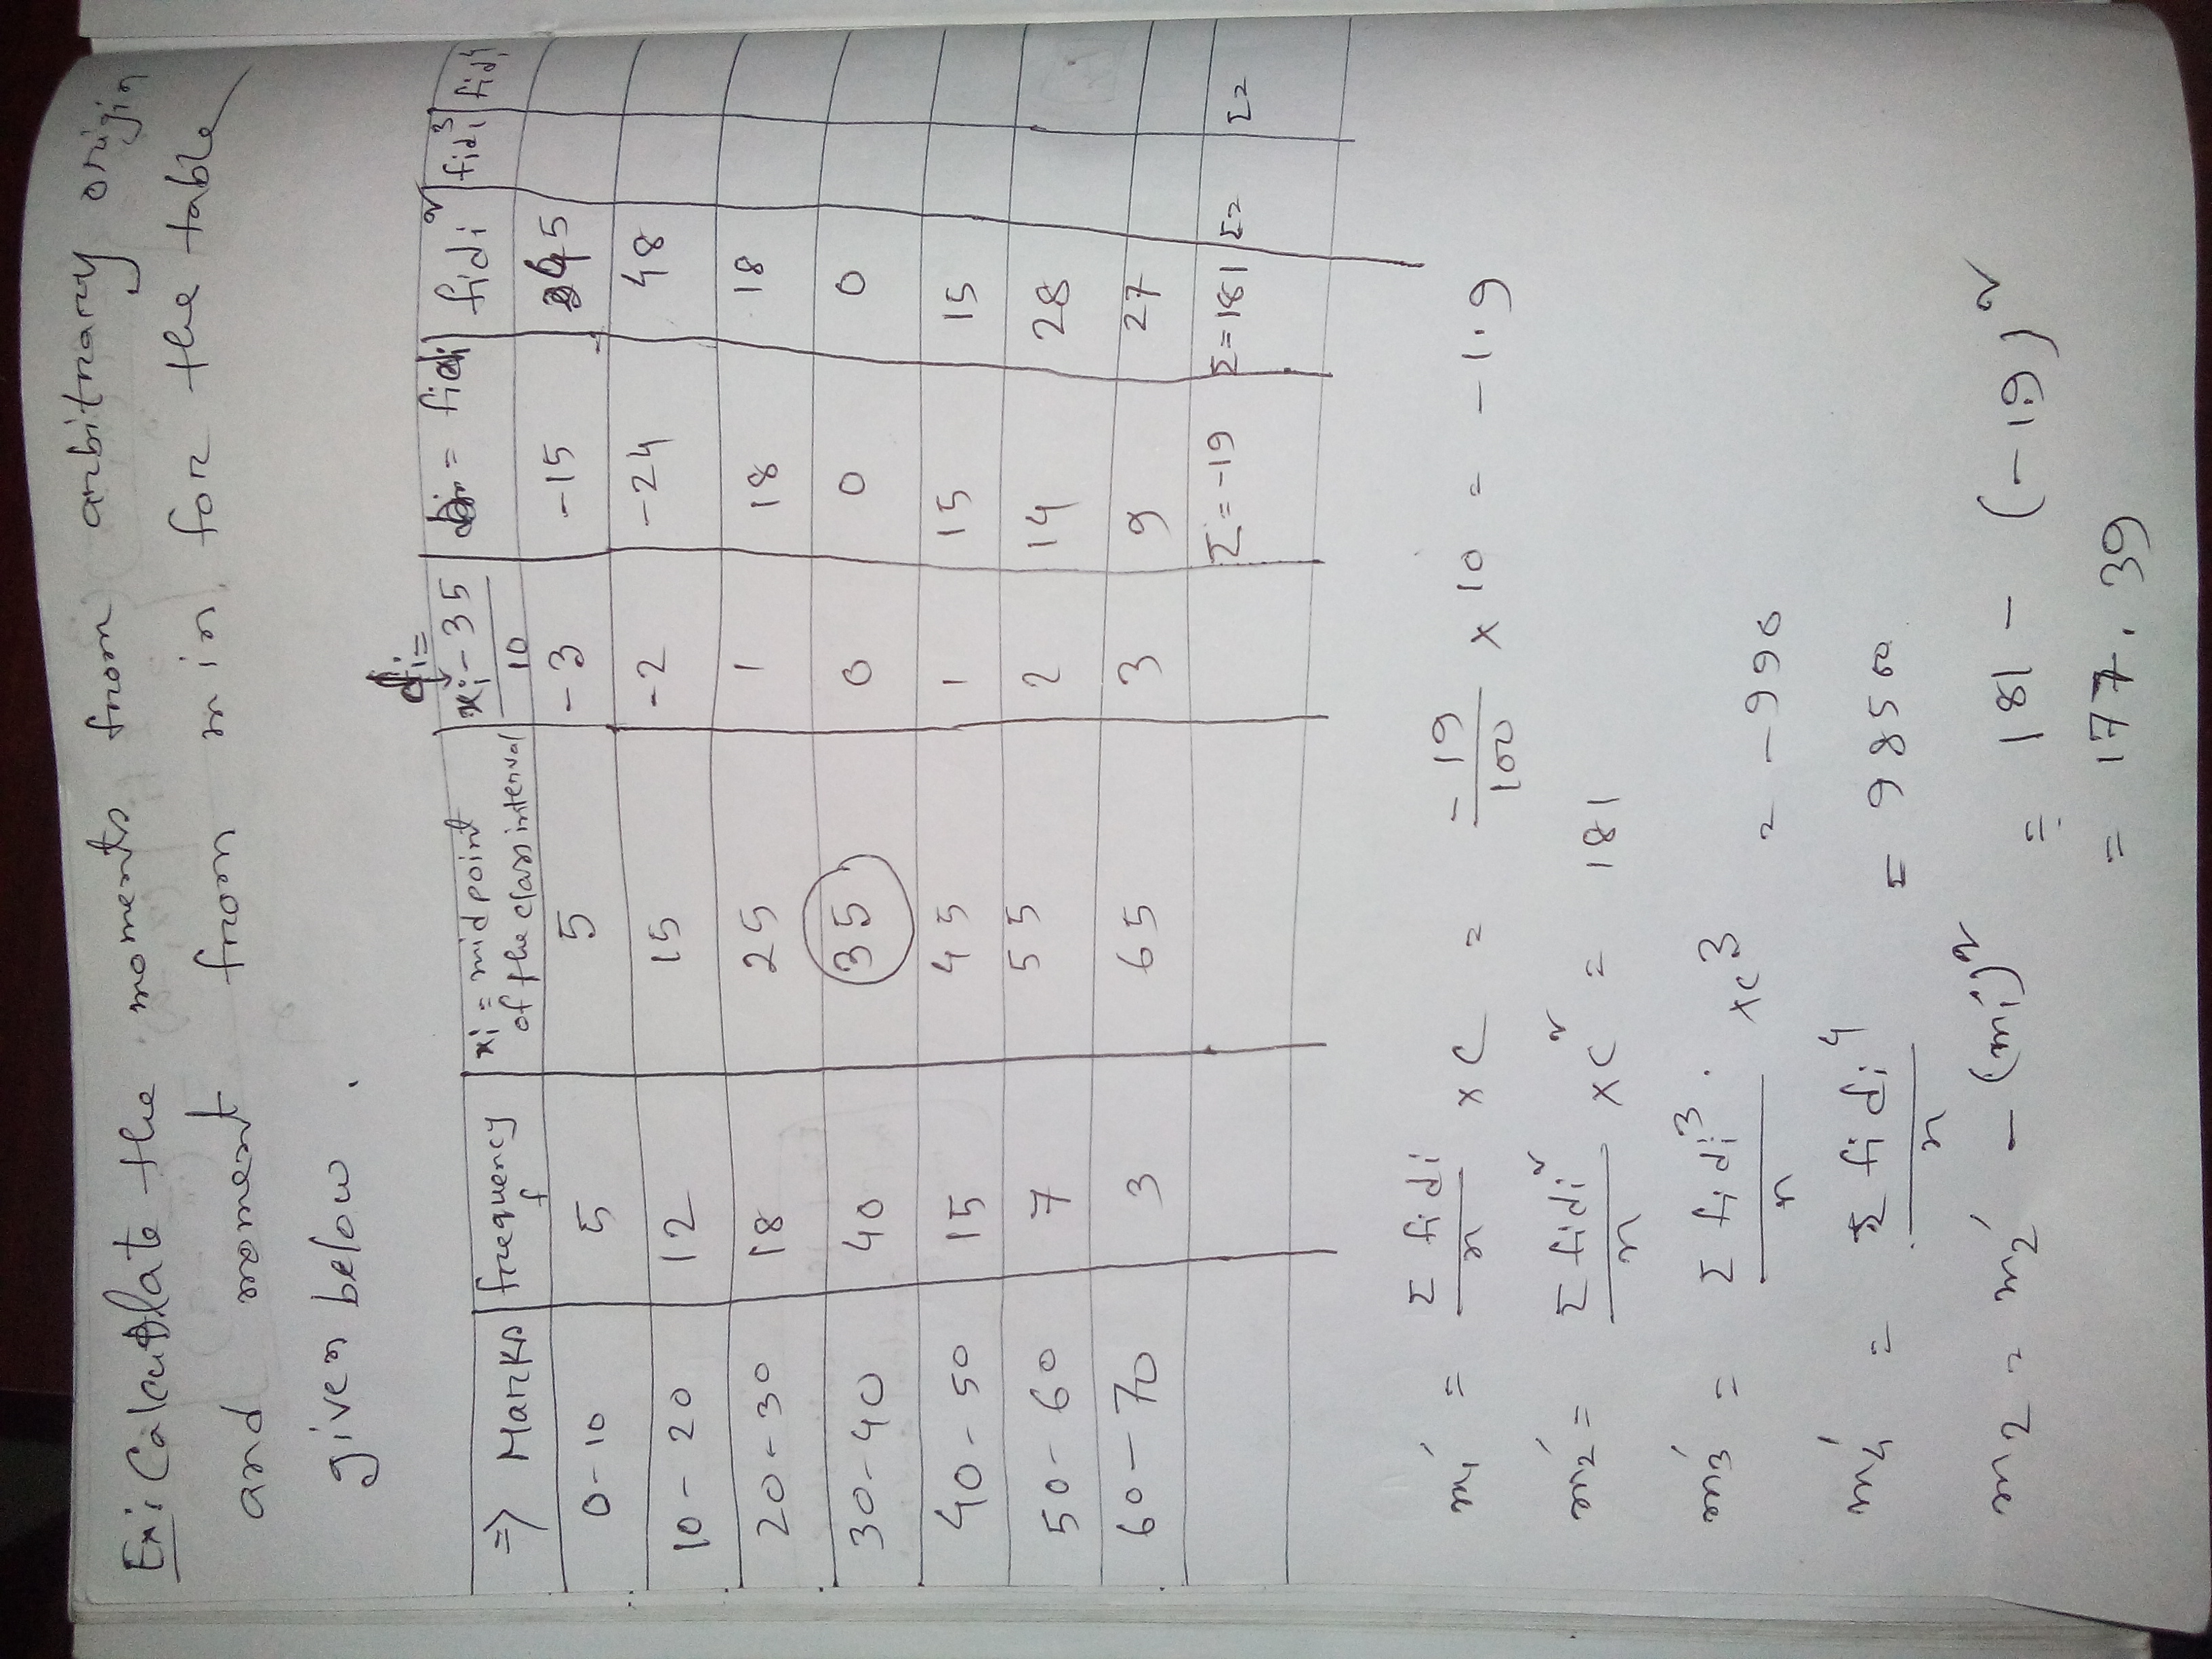 Ex: Calculate the moments from arbitrary origin
and moment from min, for the table
given below.
di=
=> Marks | frequency f | xi = mid point of the class interval | xi-35/10 | = fidi | fidi² | fidi³ | fidi⁴
0-10 | 5 | 5 | -3 | -15 | 45
10-20 | 12 | 15 | -2 | -24 | 48
20-30 | 18 | 25 | 1 | 18 | 18
30-40 | 40 | 35 | 0 | 0 | 0
40-50 | 15 | 45 | 1 | 15 | 15
50-60 | 7 | 55 | 2 | 14 | 28
60-70 | 3 | 65 | 3 | 9 | 27
Σ=-19 | Σ=181 | Σ= | Σ=
m₁' = Σfidi/n × c = = -19/100 × 10 = -1.9
m₂' = Σfidi²/n × c² = 181
m₃' = Σfidi³/n · × c³ = -990
m₄' = Σfidi⁴/n = 98500
m₂ = m₂' - (m₁')² = 181 - (-1.9)²
= 177.39